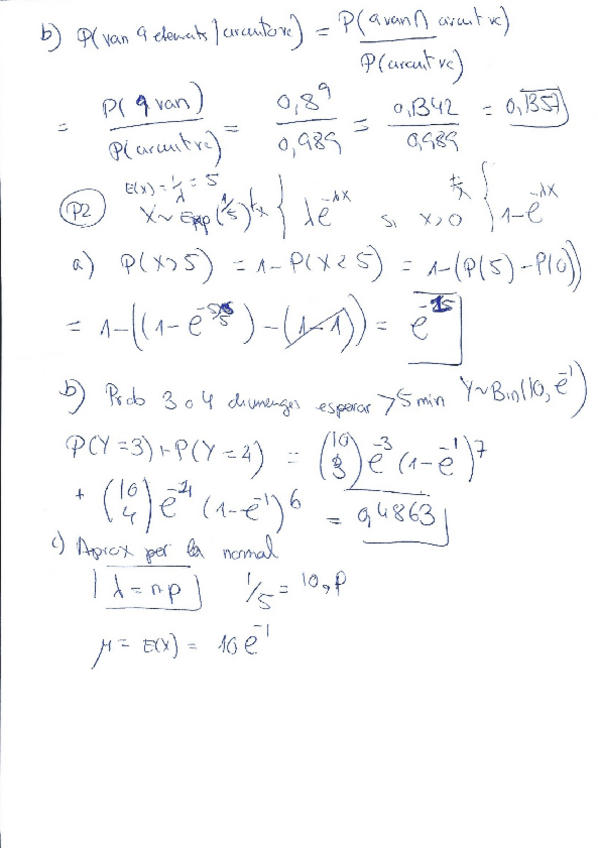 b) P(van 9 elements | circuit va) = P(9 van ∩ circuit va) / P(circuit va)
= P(9 van) / P(circuit va) = 0,8⁹ / 0,989 = 0,1342 / 0,989 = 0,1357
P2 E(x) = 1/λ = 5 X ~ Exp(1/5) fx { λe^-λx si x>0 Fx { 1-e^-λx
a) P(X>5) = 1-P(X≤5) = 1-(P(5)-P(0))
= 1-((1-e^-5/5)-(1-1)) = e^-1
b) Prob 3 o 4 diumenges esperar >5 min Y~Bin(10, e^-1)
P(Y=3)+P(Y=4) = (10 3) e^-3 (1-e^-1)^7
+ (10 4) e^-4 (1-e^-1)^6 = 0,4863
c) Aprox per la normal
λ = n·p 1/5 = 10·p
μ = E(X) = 10e^-1